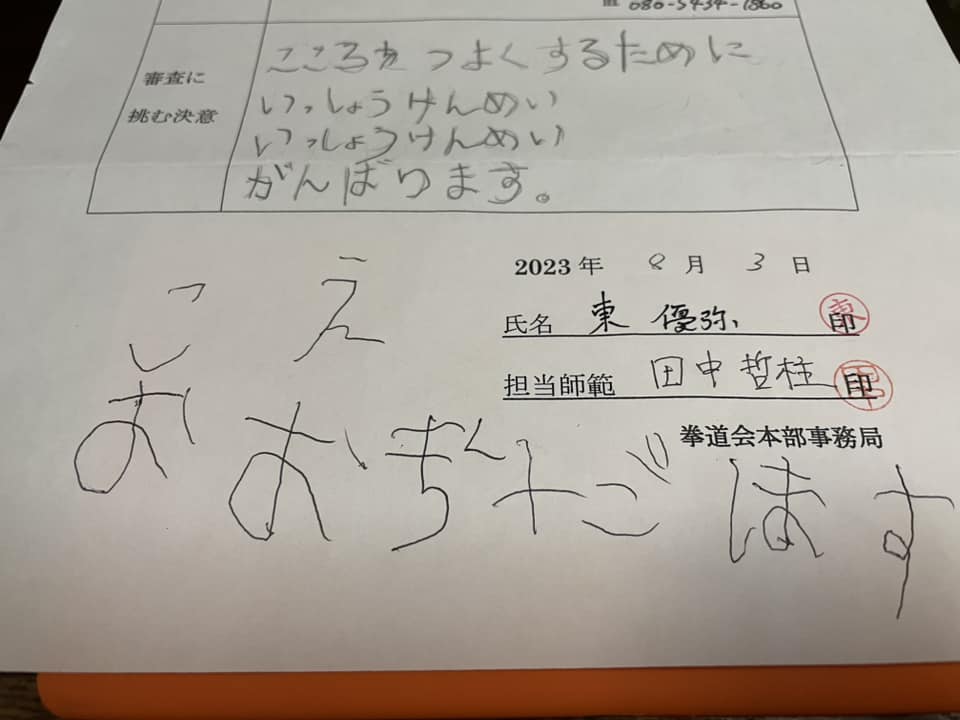 080-5434-1860
審査に
挑む決意
こころを つよくするために
いっしょうけんめい
いっしょうけんめい
がんばります。
2023 年 8 月 3 日
氏名 東 優弥 印
担当師範 田中哲柱 印
拳道会本部事務局
こえ
おおきくだします